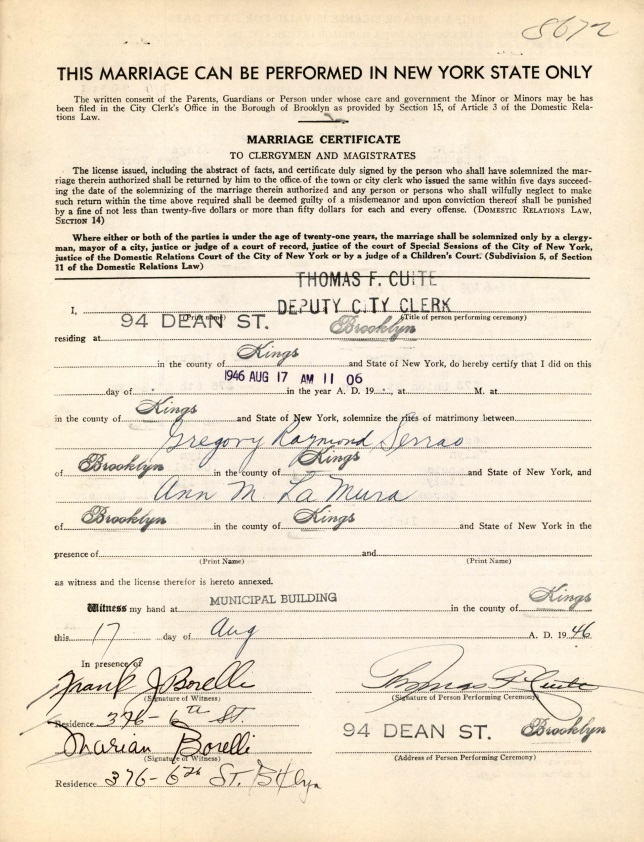 8672
THIS MARRIAGE CAN BE PERFORMED IN NEW YORK STATE ONLY
The written consent of the Parents, Guardians or Person under whose care and government the Minor or Minors may be has
been filed in the City Clerk's Office in the Borough of Brooklyn as provided by Section 15, of Article 3 of the Domestic Rela-
tions Law.
MARRIAGE CERTIFICATE
TO CLERGYMEN AND MAGISTRATES
The license issued, including the abstract of facts, and certificate duly signed by the person who shall have solemnized the mar-
riage therein authorized shall be returned by him to the office of the town or city clerk who issued the same within five days succeed-
ing the date of the solemnizing of the marriage therein authorized and any person or persons who shall wilfully neglect to make
such return within the time above required shall be deemed guilty of a misdemeanor and upon conviction thereof shall be punished
by a fine of not less than twenty-five dollars or more than fifty dollars for each and every offense. (DOMESTIC RELATIONS LAW,
SECTION 14)
Where either or both of the parties is under the age of twenty-one years, the marriage shall be solemnized only by a clergy-
man, mayor of a city, justice or judge of a court of record, justice of the court of Special Sessions of the City of New York,
justice of the Domestic Relations Court of the City of New York or by a judge of a Children's Court. (Subdivision 5, of Section
11 of the Domestic Relations Law)
THOMAS F. CUITE
I, DEPUTY CITY CLERK
(Print name) (Title of person performing ceremony)
residing at 94 DEAN ST. Brooklyn
in the county of Kings and State of New York, do hereby certify that I did on this
1946 AUG 17 AM 11 06
day of in the year A. D. 19 , at M. at
in the county of Kings and State of New York, solemnize the rites of matrimony between
Gregory Raymond Serrao
of Brooklyn in the county of Kings and State of New York, and
Ann M. La Mura
of Brooklyn in the county of Kings and State of New York in the
presence of and
(Print Name) (Print Name)
as witness and the license therefor is hereto annexed.
Witness my hand at MUNICIPAL BUILDING in the county of Kings
this 17 day of Aug A. D. 19 46
In presence of
Frank J Borelli Thomas F Cuite
(Signature of Witness) (Signature of Person Performing Ceremony)
Residence 376 - 6th St.
94 DEAN ST. Brooklyn
Marian Borelli
(Signature of Witness) (Address of Person Performing Ceremony)
Residence 376 - 6th St. Bklyn